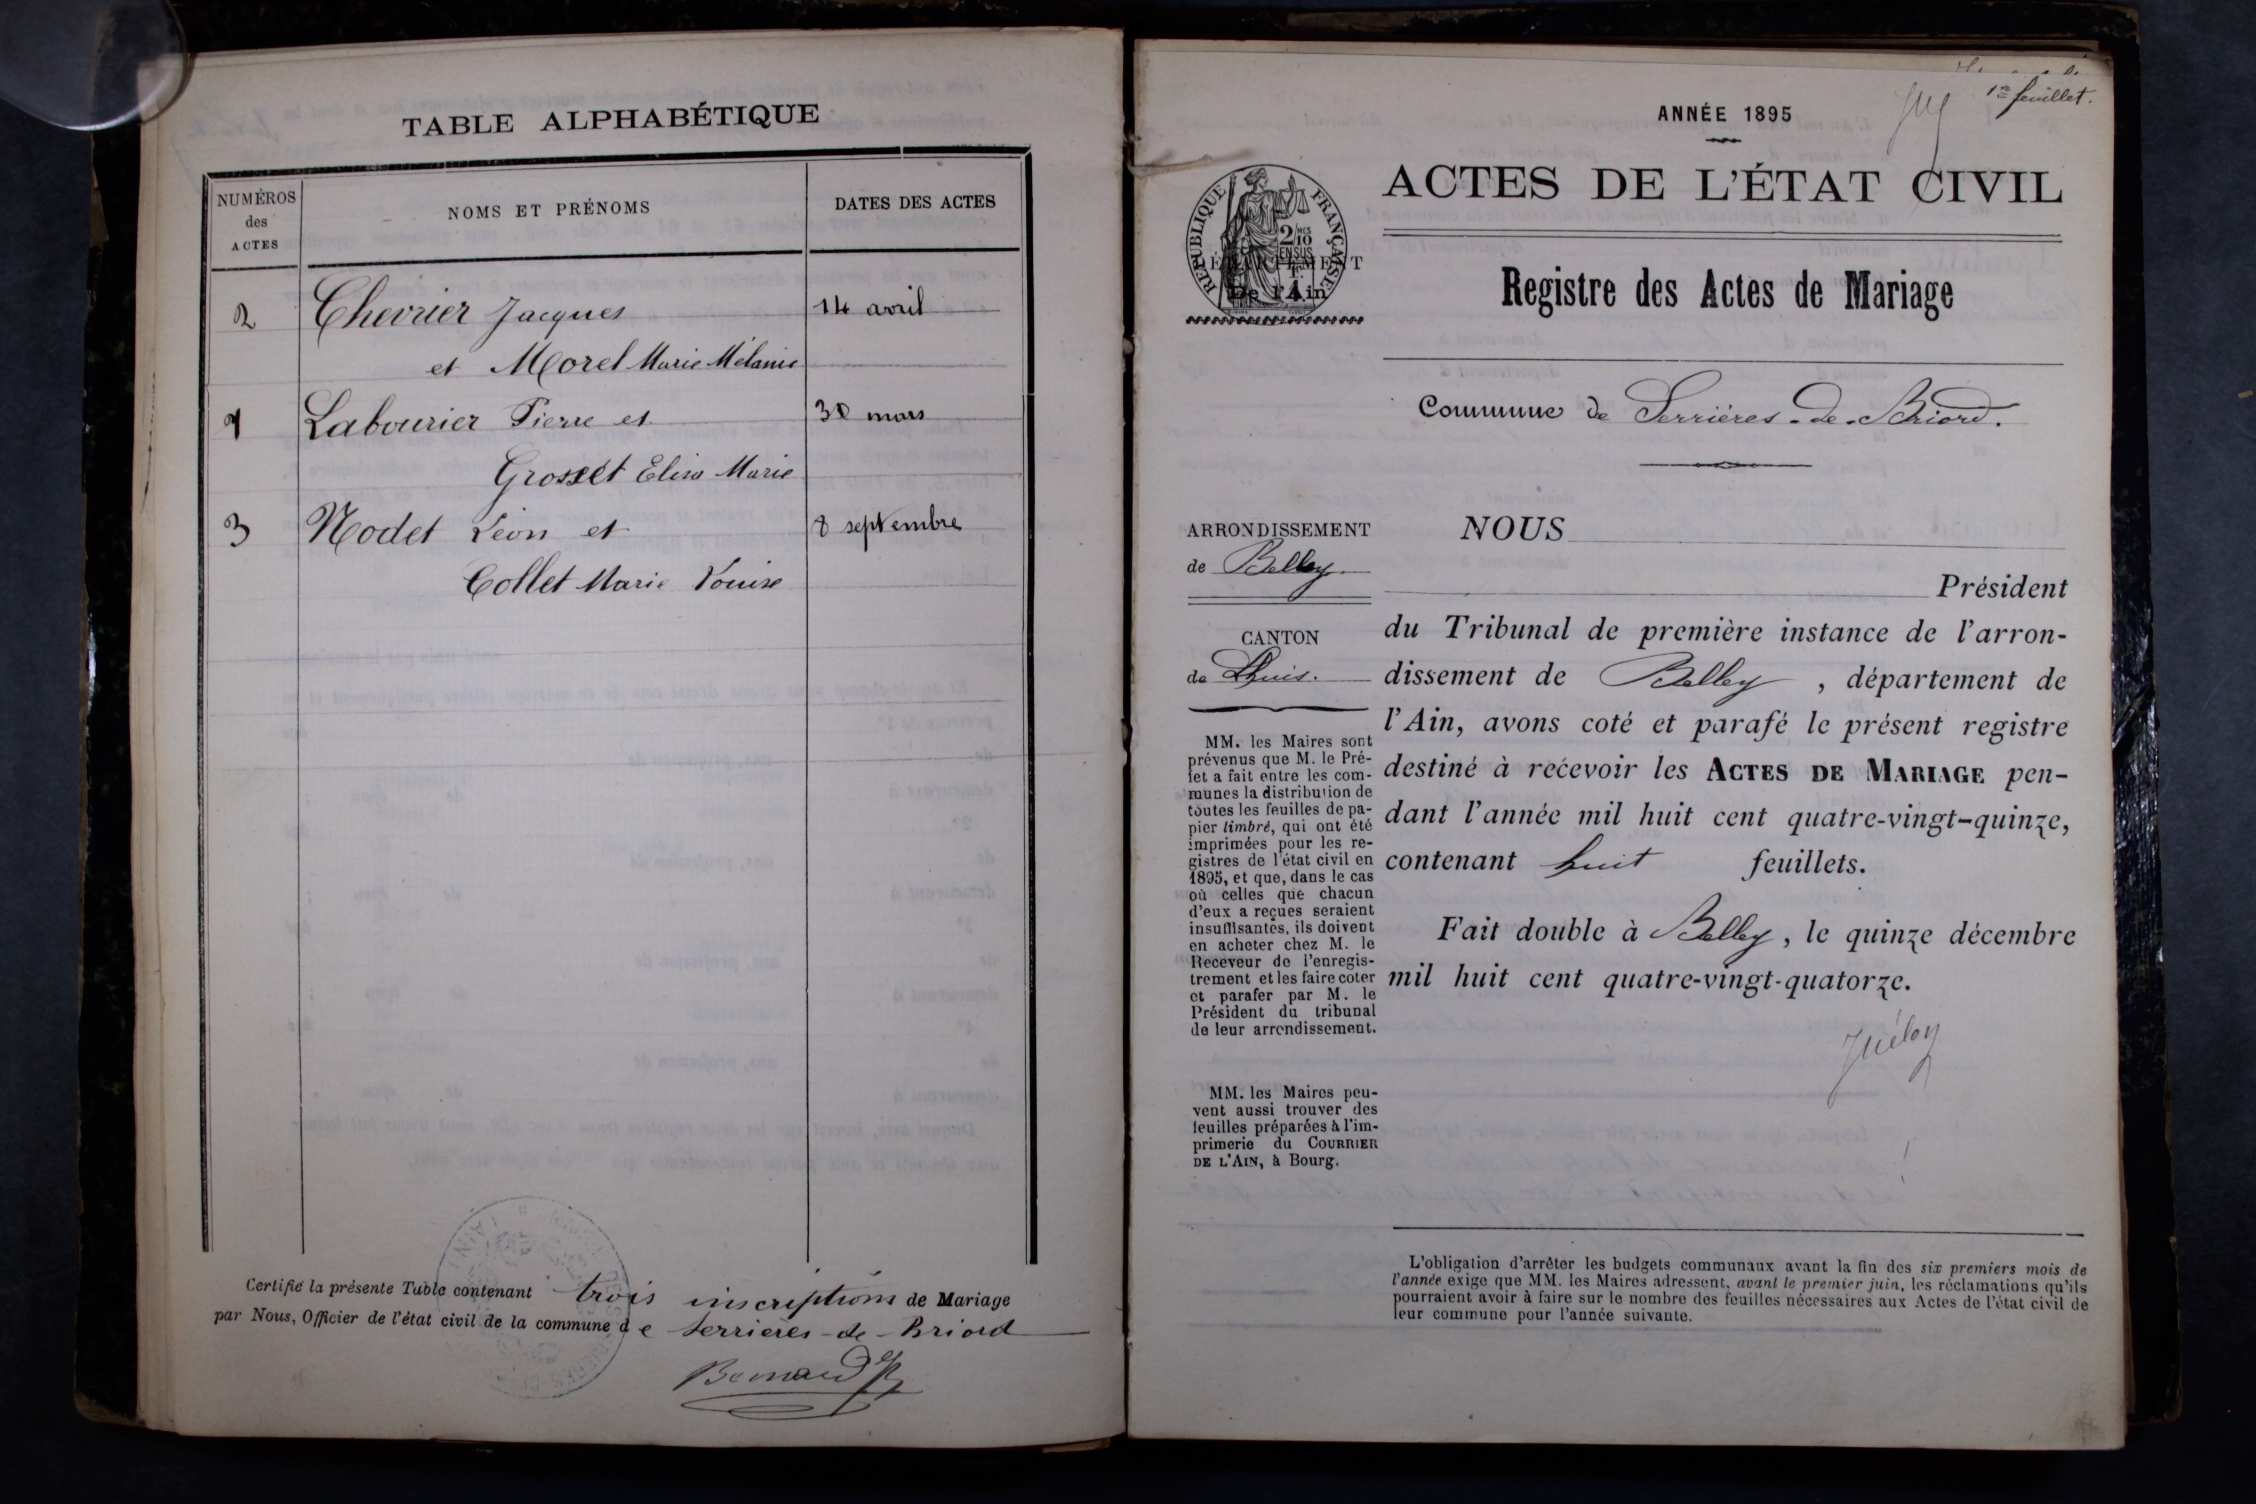 TABLE ALPHABÉTIQUE
NUMÉROS
des
ACTES
NOMS ET PRÉNOMS
DATES DES ACTES
2 Chevrier Jacques 14 avril
et Morel Marie Mélanie
1 Labourier Pierre et 30 mars
Grosset Elisa Marie
3 Nodet Léon et 8 septembre
Collet Marie Louise
Certifié la présente Table contenant trois inscriptions de Mariage
par Nous, Officier de l'état civil de la commune de Serrières-de-Briord
Bernard
1er feuillet.
ANNÉE 1895
ACTES DE L'ÉTAT CIVIL
RÉPUBLIQUE FRANÇAISE
2/10 EN SUS
DÉPARTEMENT
De l'Ain
Registre des Actes de Mariage
Commune de Serrières-de-Briord.
ARRONDISSEMENT
de Belley.
CANTON
de Lhuis.
MM. les Maires sont
prévenus que M. le Pré-
fet a fait entre les com-
munes la distribution de
toutes les feuilles de pa-
pier timbré, qui ont été
imprimées pour les re-
gistres de l'état civil en
1895, et que, dans le cas
où celles que chacun
d'eux a reçues seraient
insuffisantes, ils doivent
en acheter chez M. le
Receveur de l'enregis-
trement et les faire coter
et parafer par M. le
Président du tribunal
de leur arrondissement.
MM. les Maires peu-
vent aussi trouver des
feuilles préparées à l'im-
primerie du COURRIER
DE L'AIN, à Bourg.
NOUS
Président
du Tribunal de première instance de l'arron-
dissement de Belley, département de
l'Ain, avons coté et parafé le présent registre
destiné à recevoir les ACTES DE MARIAGE pen-
dant l'année mil huit cent quatre-vingt-quinze,
contenant huit feuillets.
Fait double à Belley, le quinze décembre
mil huit cent quatre-vingt-quatorze.
L'obligation d'arrêter les budgets communaux avant la fin des six premiers mois de
l'année exige que MM. les Maires adressent, avant le premier juin, les réclamations qu'ils
pourraient avoir à faire sur le nombre des feuilles nécessaires aux Actes de l'état civil de
leur commune pour l'année suivante.